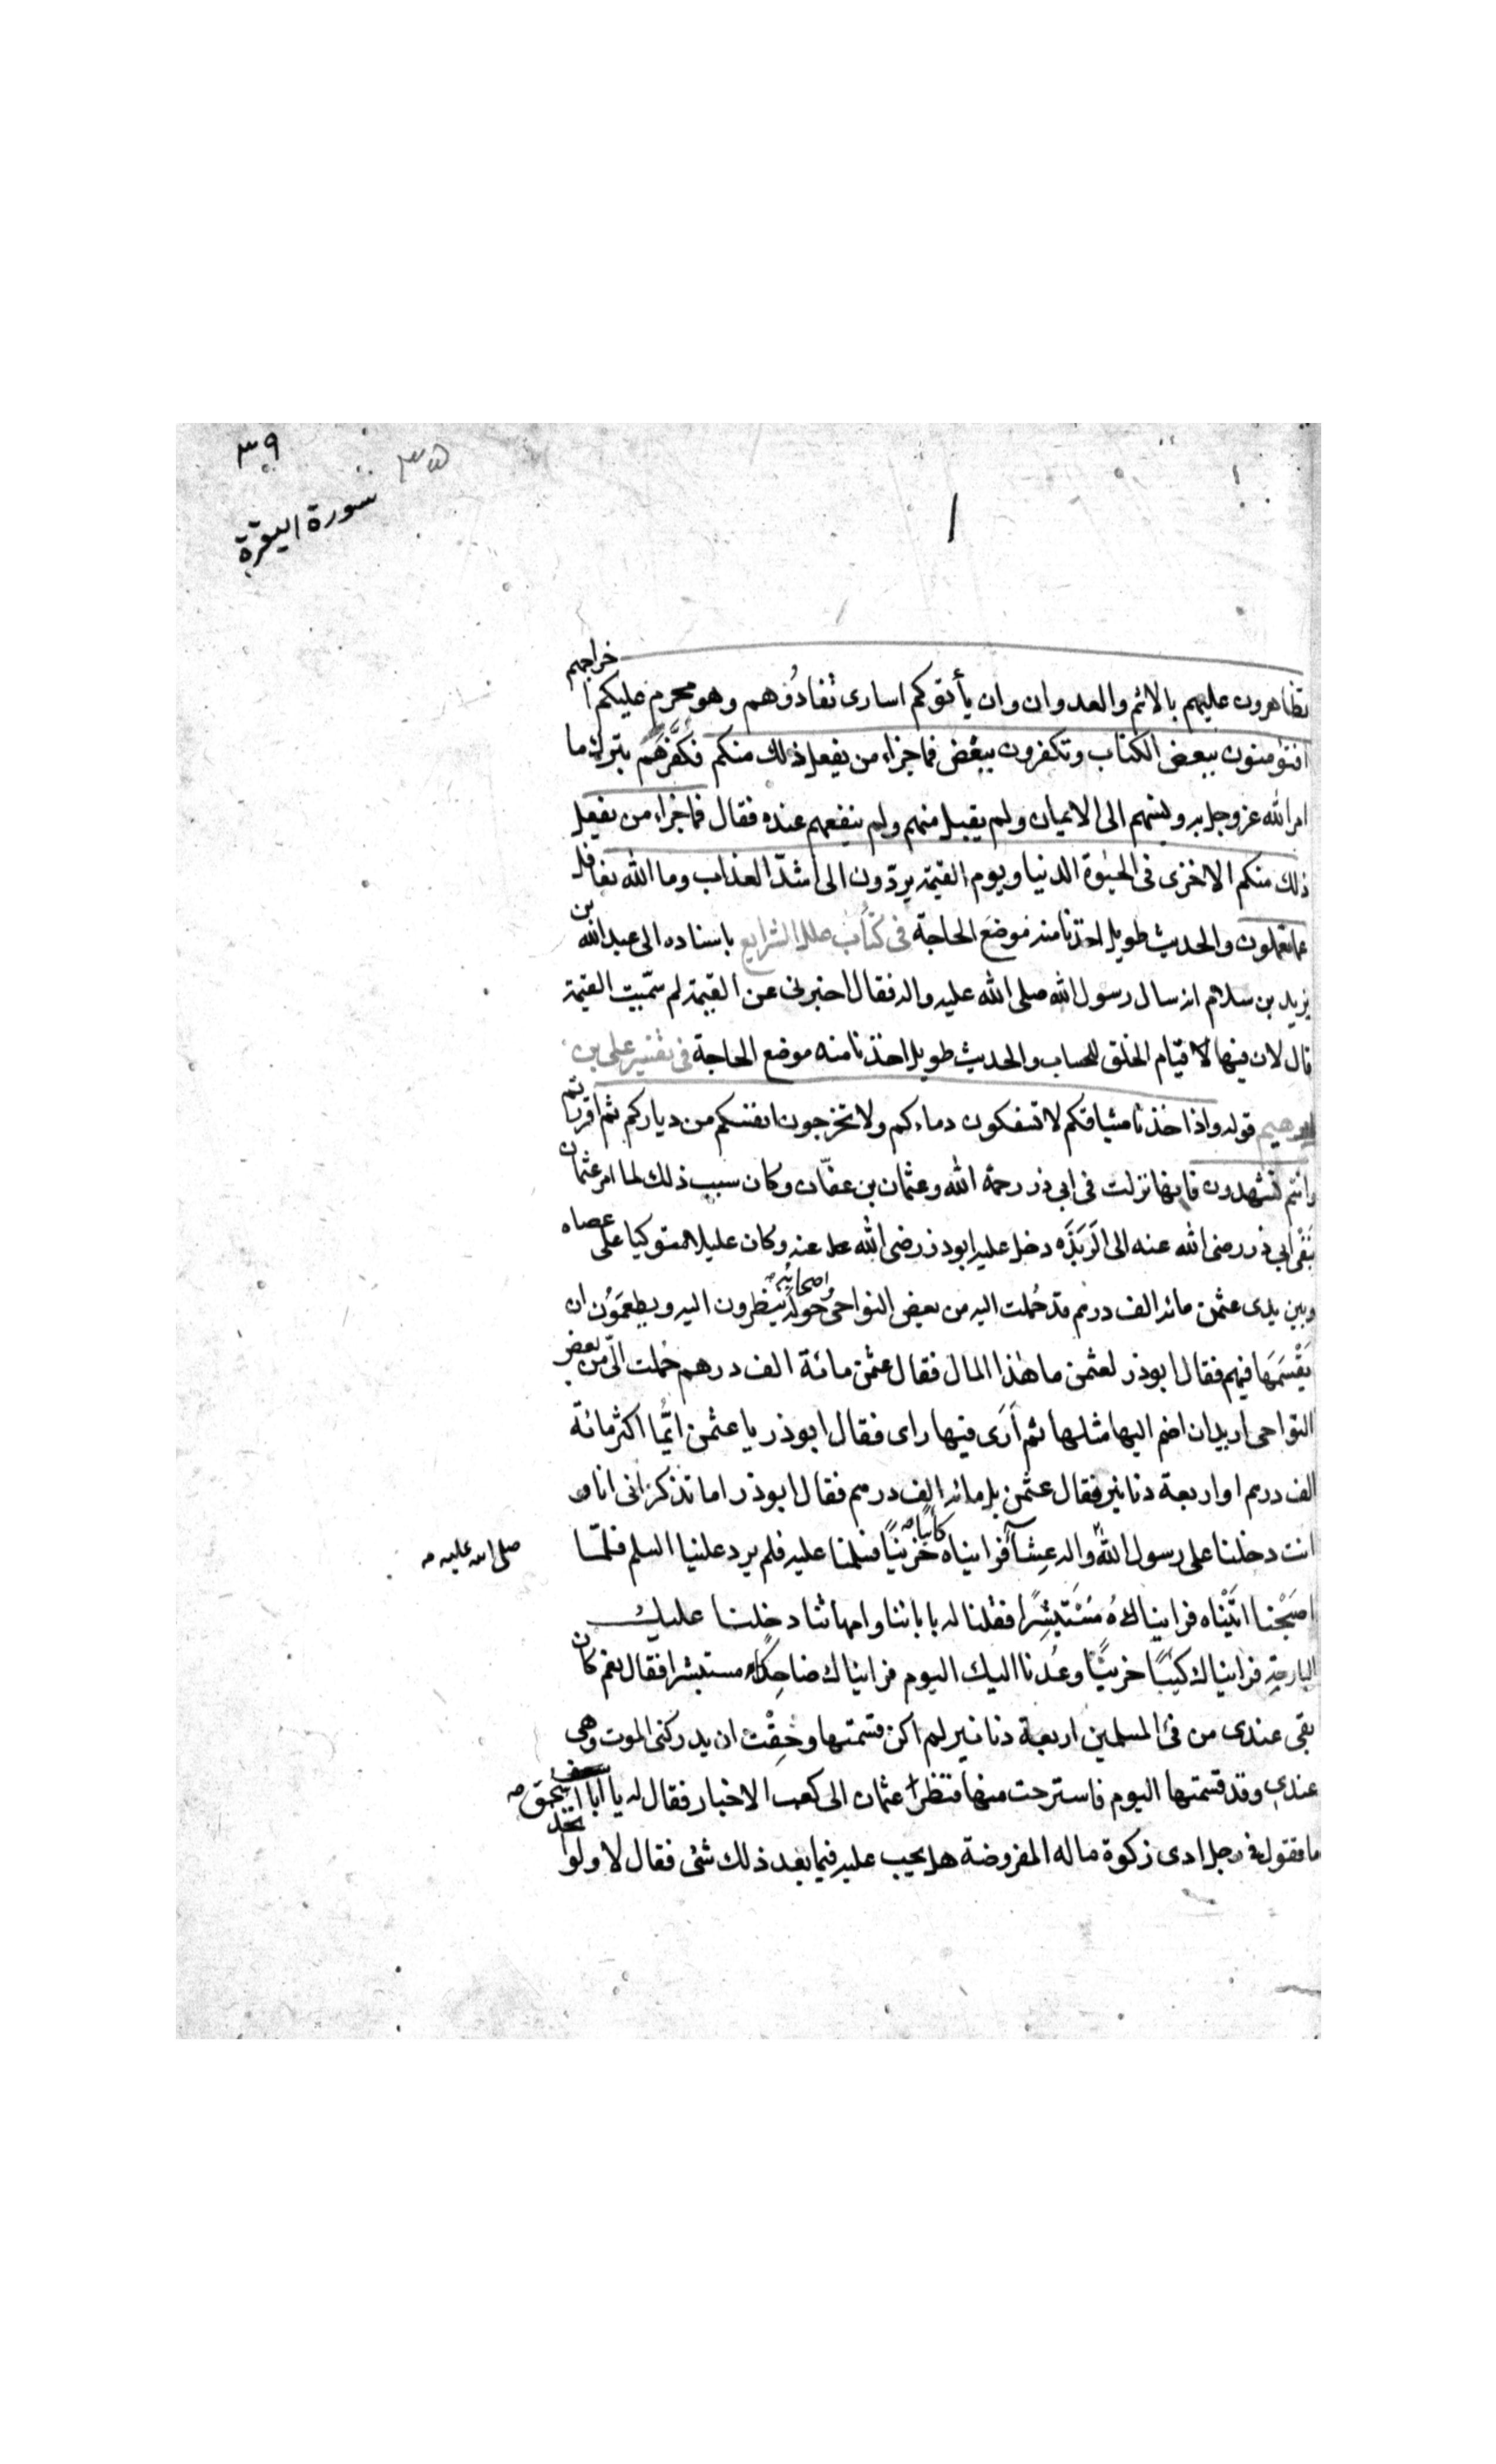 ٣٩
٣٥
سورة البقرة
تظاهرون عليهم بالاثم والعدوان وان يأتوكم اسارى تفادُوهم وهو محرم عليكم اخراجهم
افتؤمنون ببعض الكتاب وتكفرون ببعض فما جزاء من يفعل ذلك منكم فكفّرَهُم بترك ما
امر الله عز وجل به ونسبهم الى الايمان ولم يقبل منهم ولم ينفعهم عنده فقال فما جزاء من يفعل
ذلك منكم الا خزى فى الحيوة الدنيا ويوم القيمة يردّون الى اشدّ العذاب وما الله بغافل
عما تعملون والحديث طويل اخذنا منه موضع الحاجة فى كتاب علل الشرايع باسناده الى عبد الله بن
يزيد بن سلام انه سال رسول الله صلى الله عليه واله فقال اخبرنى عن القيمة لم سمّيت القيمة
قال لان فيها قيام الخلق للحساب والحديث طويل اخذنا منه موضع الحاجة فى تفسير على بن
ابرهيم قوله واذ اخذنا ميثاقكم لا تسفكون دماءكم ولا تخرجون انفسكم من دياركم ثم اقررتم
وانتم تشهدون فانها نزلت فى ابى ذر رحمة الله وعثمان بن عفّان وكان سبب ذلك لما امر عثمان
بنَفى ابى ذر رضى الله عنه الى الرَبَذَه دخل عليه ابوذر رضى الله عنه وكان عليلا متوكيا على عصاه
وبين يدى عثمن مائه الف درهم قد حُملت اليه من بعض النواحى واصحابُه حَولَه ينظرون اليه ويطمعَوُن ان
يَقْسمَها فيهم فقال ابوذر لعثمن ما هذا المال فقال عثمن مائة الف درهم حُملت الىّ من بعض
النواحى اريد ان اضم اليها مثلها ثم اَرَى فيها راى فقال ابوذر يا عثمن ايُّما اكثر مائة
الف درهم او اربعة دنانير فقال عثمن بل مائه الف درهم فقال ابوذر اما تذكر انى انا و
انت دخلنا على رسول الله واله عِشآءً فرايناه كئيبًا حَزينًا فسلمنا عليه فلم يرد علينا السلم فلمّا
صلى الله عليه
اصبَحْنا اتَيْناه فرايناهُ مُسْتَبْشِرًا فقلنا له بابائنا وامهاتنا دخلنا عليك
البارحة فرايناك كئيبًا حزينًا وعُدنا اليك اليوم فرايناك ضاحِكًا مستبشرا فقال نعم كان
بقى عندى من فئ المسلمين اربعة دنانير لم اكن قسمتها وخِفْت ان يدركنى الموت وهى
عندى وقد قسمتها اليوم فاسترحت منها فنظر عثمان الى كعب الاحبار فقال له يا ابا اسحق
ما تقول فى رجل ادى زكوة ماله المفروضة هل يجب عليه فيما بعد ذلك شئ فقال لا ولو اتخذ